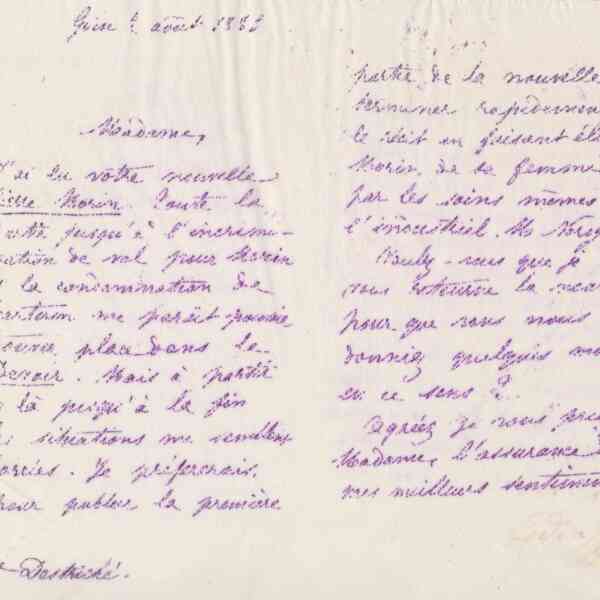 Guise 2 août 1883
Madame,
J'ai lu votre nouvelle
Pierre Morin. Toute la
jusqu'à l'incrimi-
nation de vol pour Morin
la condamnation de
me paraît pouvoir
place dans le
Devoir. Mais à partir
là jusqu'à la fin
situations me semblent
forcées. Je préférerais,
pour publier la première
Destriché.
partie de la nouvelle
terminer rapidement
le récit en faisant
Morin, de sa femme
par les soins mêmes
l'industriel. M.
Voulez-vous que je
vous retourne la
pour que vous nous
donniez quelques
en ce sens ?
Agréez je vous prie
Madame, l'assurance
mes meilleurs sentiments